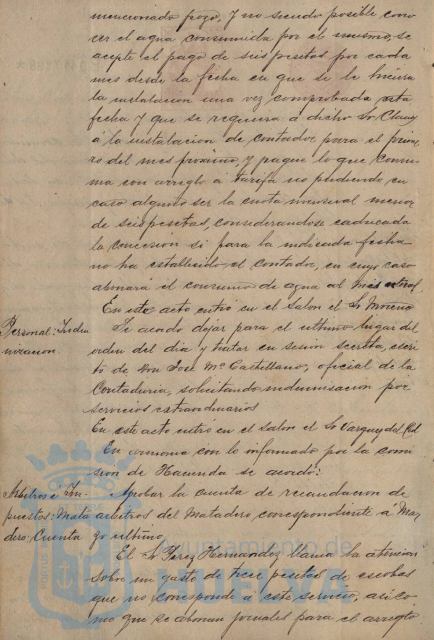 mencionado pozo, y no siendo posible cono
cer el agua consumida por el mismo, se
acepte el pago de seis pesetas por cada
mes desde la fecha en que se le hiciera
la instalacion una vez comprobada esta
fecha y que se requiera a dicho Sr Clauss
á la instalacion de contador para el prime
ro del mes proximo, y pague lo que consu
ma con arreglo a tarifa no pudiendo en
caso alguno ser la cuota mensual menor
de seis pesetas, considerandose caducada
la concesion si para la indicada fecha
no ha establecido el contador, en cuyo caso
abonará el consumo de agua al
En este acto entró en el Salon el Sr Moreno
Personal: Indem
nizacion
Se acordó dejar para el ultimo lugar del
orden del dia y tratar en sesion secreta, escri
to de Don José Mª Castellano, oficial de la
Contaduria, solicitando indemnizacion por
servicios extraordinarios
En este acto entro en el Salon el Sr Vazquez del Cid
En armonia con lo informado por la comi
sion de Hacienda se acordó:
Arbitros é Im-
puestos: Mata
dero: Cuenta
Aprobar la cuenta de recaudacion de
arbitros del Matadero correspondiente á Ma
yo ultimo
El Sr Perez Hernandez llama la atencion
sobre un gasto de trece pesetas de escobas
que no corresponde a este servicio, asi co
mo que se abonan jornales para el arreglo
Ayuntamiento de
HUELVA